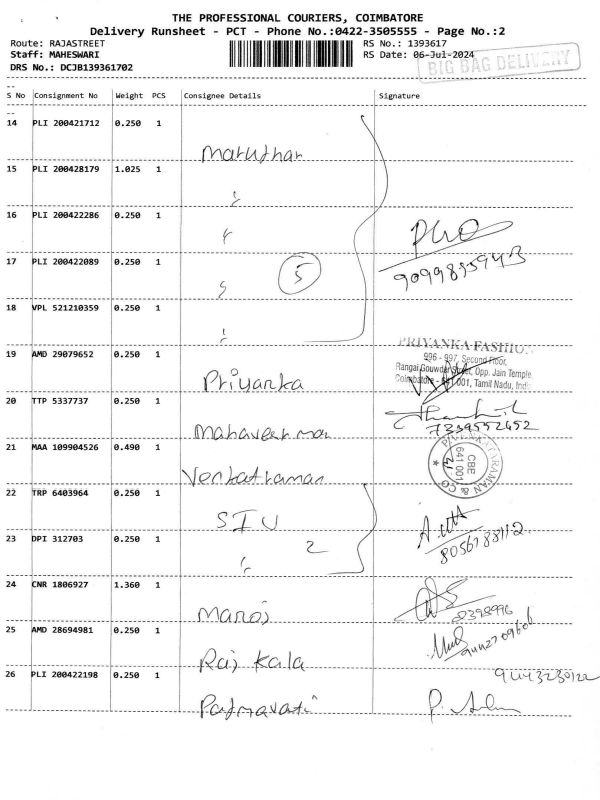 THE PROFESSIONAL COURIERS, COIMBATORE
Delivery Runsheet - PCT - Phone No.:0422-3505555 - Page No.:2
Route: RAJASTREET RS No.: 1393617
Staff: MAHESWARI RS Date: 06-Jul-2024
DRS No.: DCJB139361702
BIG BAG DELIVERY
S No Consignment No Weight PCS Consignee Details Signature
14 PLI 200421712 0.250 1
Maruthar
15 PLI 200428179 1.025 1
16 PLI 200422286 0.250 1
17 PLI 200422089 0.250 1
5
18 VPL 521210359 0.250 1
PRIYANKA FASHION
996 - 997, Second Floor,
Rangai Gouwder Street, Opp. Jain Temple
Coimbatore - 641 001, Tamil Nadu, India
19 AMD 29079652 0.250 1
Priyanka
20 TTP 5337737 0.250 1
Mahaveer mar
7339552652
21 MAA 109904526 0.490 1
Venkatraman
VENKATARAMAN & CO
CBE
641 001
22 TRP 6403964 0.250 1
SIV
23 DPI 312703 0.250 1
2
24 CNR 1806927 1.360 1
Manoj
25 AMD 28694981 0.250 1
Raj Kala
26 PLI 200422198 0.250 1
Padmavati